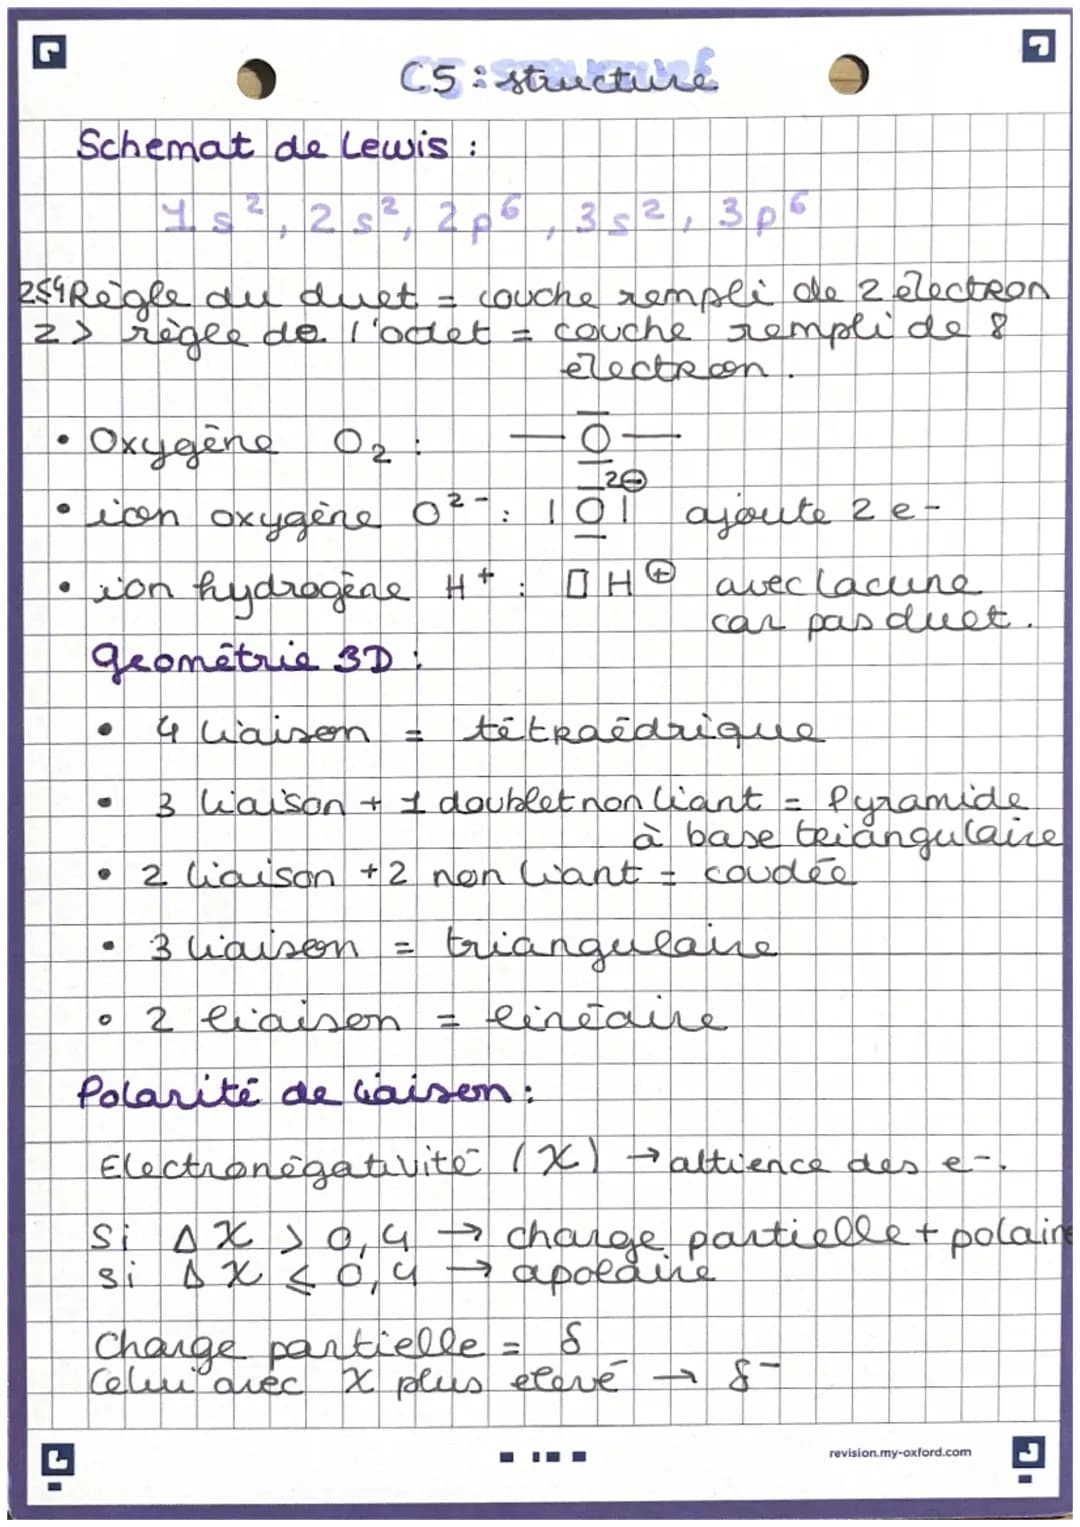 C5 : structure
Schemat de Lewis :
1s², 2s², 2p⁶, 3s², 3p⁶
Z≤4 Règle du duet = couche rempli de 2 électron
Z> règle de l'octet = couche rempli de 8
électron.
• Oxygène O₂ : —O—
• ion oxygène O²⁻ : |O| 2⊖ ajoute 2 e-
• ion hydrogène H⁺ : □ H ⊕ avec lacune
car pas duet.
géométrie 3D :
• 4 liaison = tétraédrique
• 3 liaison + 1 doublet non liant = Pyramide
à base triangulaire
• 2 liaison + 2 non liant = coudée
• 3 liaison = triangulaire
• 2 liaison = linéaire
Polarité de liaison :
Electronégativité (χ) → attience des e-.
Si Δχ > 0,4 → charge partielle + polaire
si Δχ ≤ 0,4 → apolaire
Charge partielle = δ
Celui avec χ plus élevé → δ⁻
revision.my-oxford.com